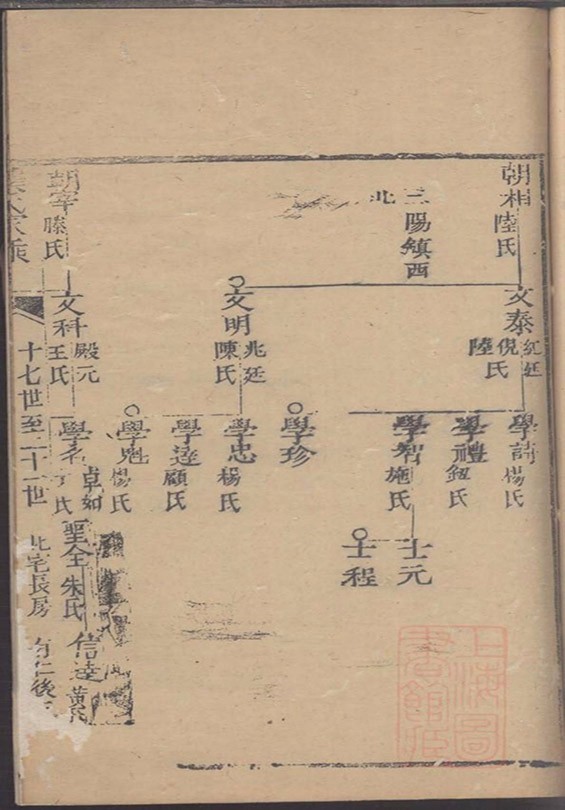 朝相
陸氏
三陽鎮西
北
文泰
紅廷
倪氏
陸
文明
兆廷
陳氏
學詩
楊氏
學禮
鈕氏
學智
施氏
學珍
學忠
楊氏
學達
顧氏
學魁
楊氏
士元
士程
朝宰
滕氏
文科
殿元
王氏
學名
卓如
氏
聖全
朱氏
信達
黃氏
氏家乘
十七世至二十一世
北宅長房
上海圖書館